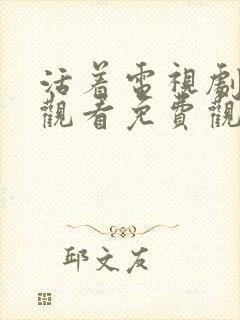 活着電視劇
觀看免費觀
邱文友